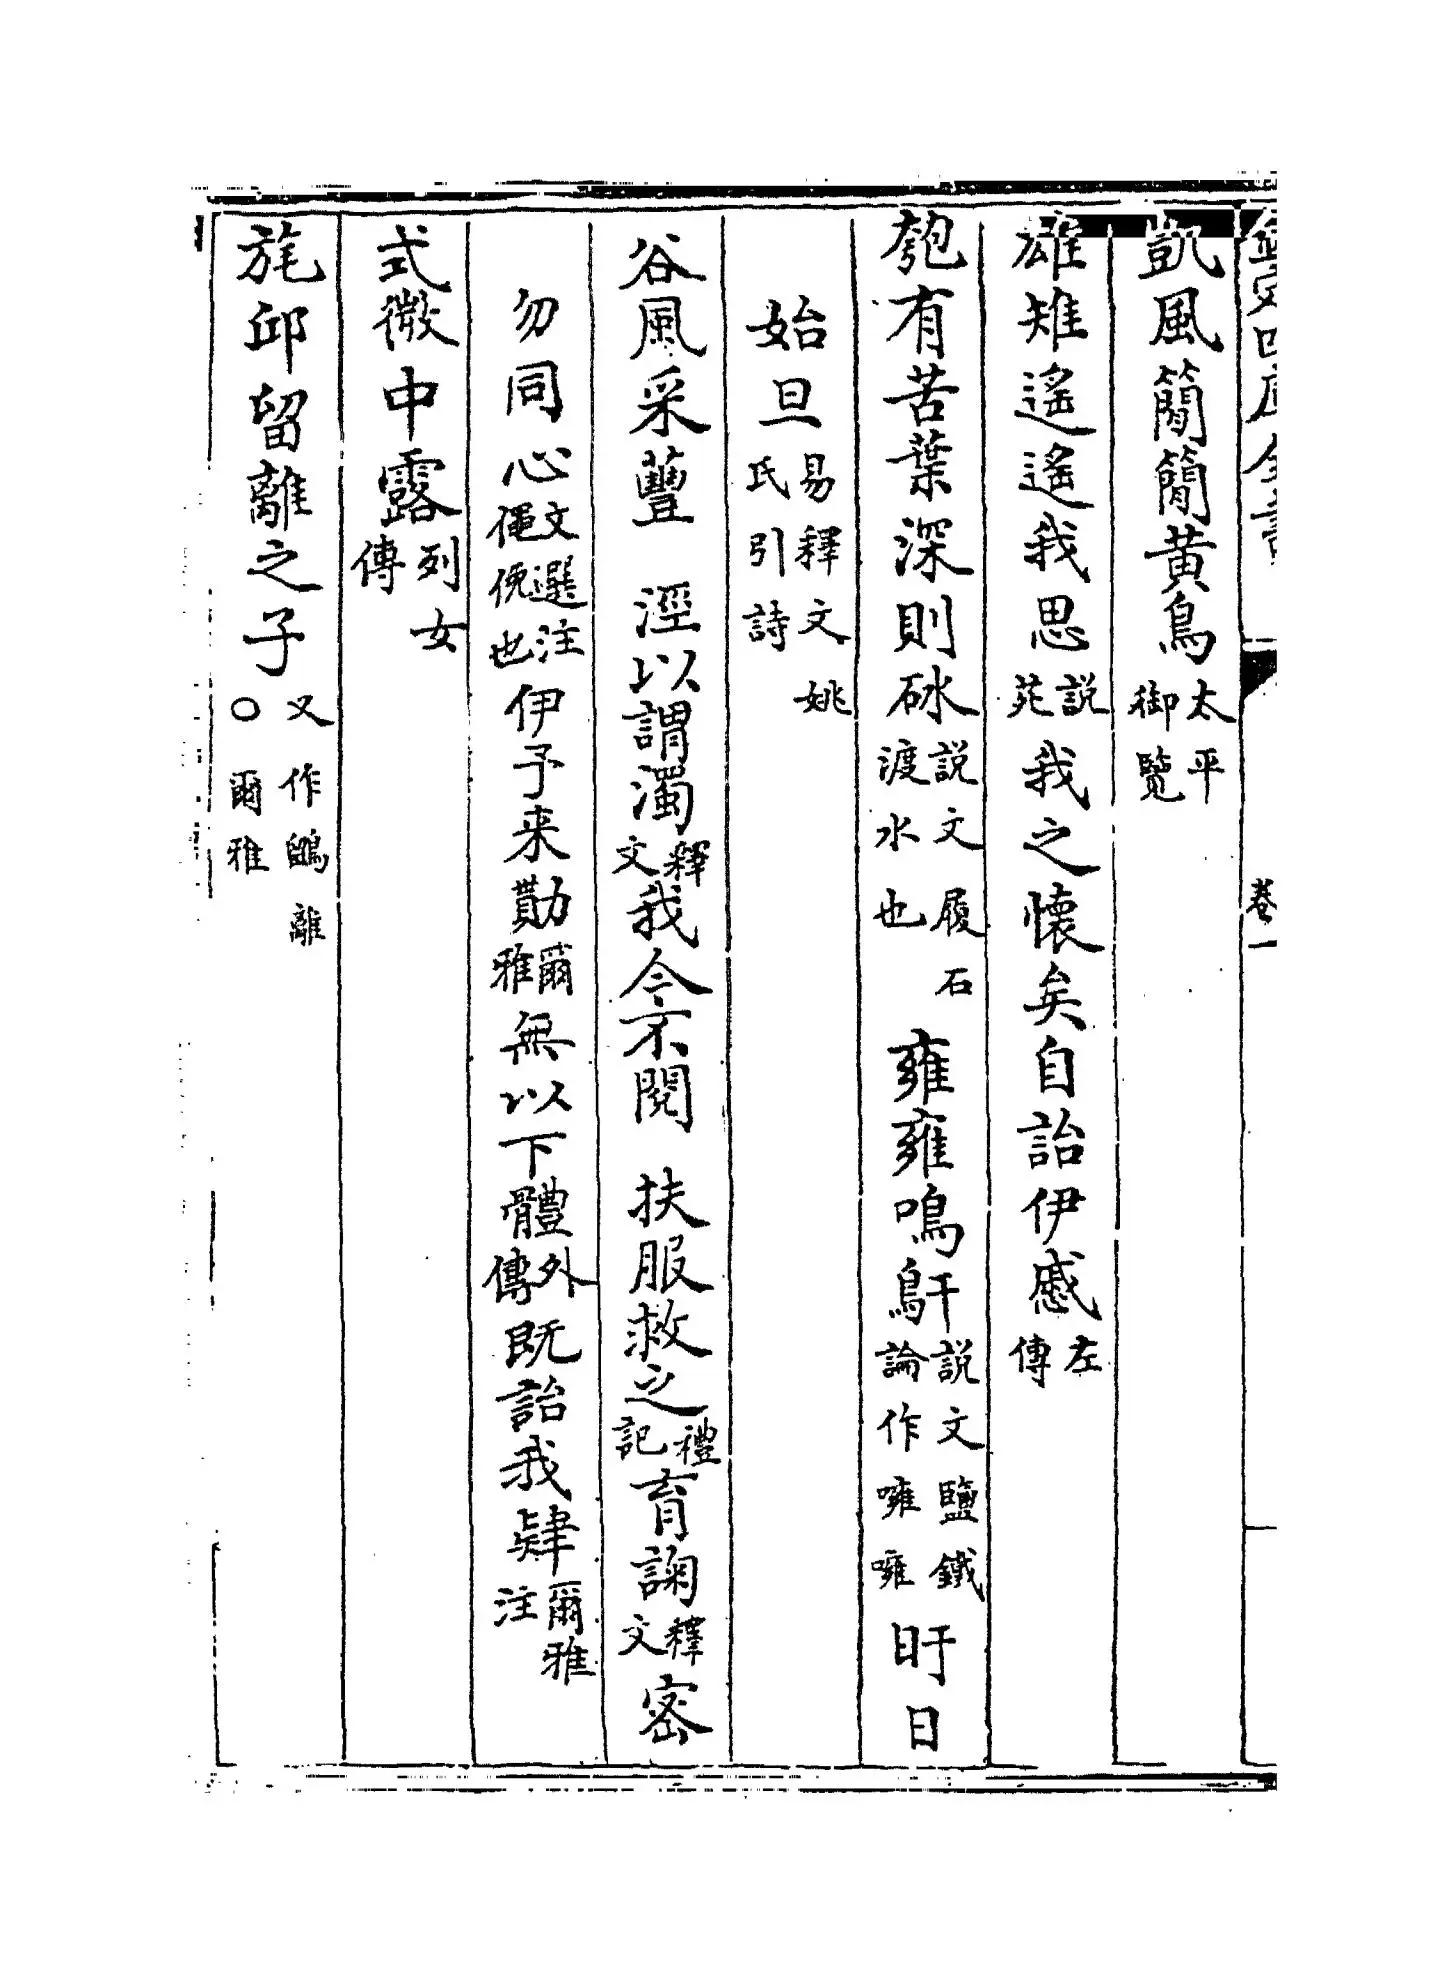 欽定四庫全書 卷一
凱風簡簡黄鳥太平御覽
雄雉遙遙我思説苑我之懐矣自詒伊慼左傳
匏有苦葉深則砅説文履石渡水也雍雍鳴鳱説文鹽鐵論作噰噰旴日
始旦易釋文姚氏引詩
谷風采蘴 溼以謂濁釋文我今不閱 扶服救之禮記育諊釋文密
勿同心文選注僶俛也伊予来勩爾雅無以下體外傳既詒我肄爾雅注
式微中露列女傳
旄邱留離之子又作鶹離〇爾雅